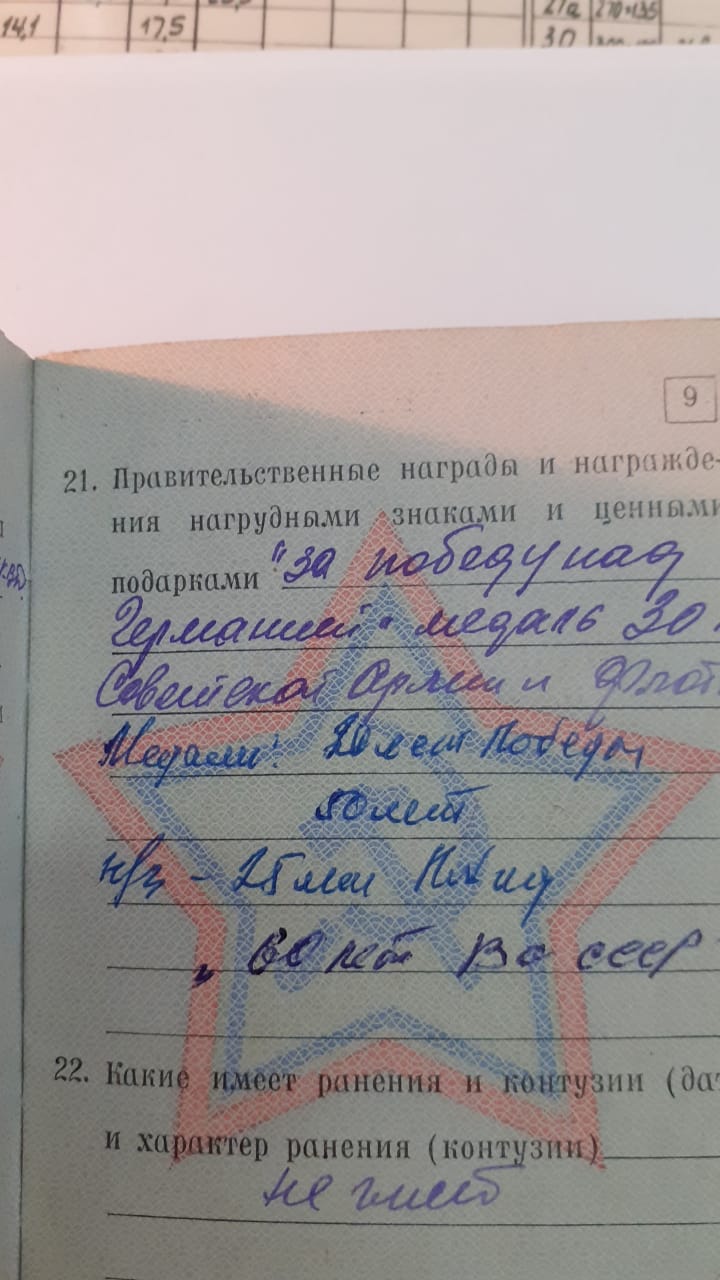 14,1 17,5 27а 270×135
30
9
21. Правительственные награды и награжде-
ния нагрудными знаками и ценными
подарками "За победу над
Германией" медаль 30
Советской Армии и Флот
Медали: 20 лет Победы
50 лет
н/з - 25 лет
" 60 лет ВС СССР
22. Какие имеет ранения и контузии (дат
и характер ранения (контузии)
не имеет